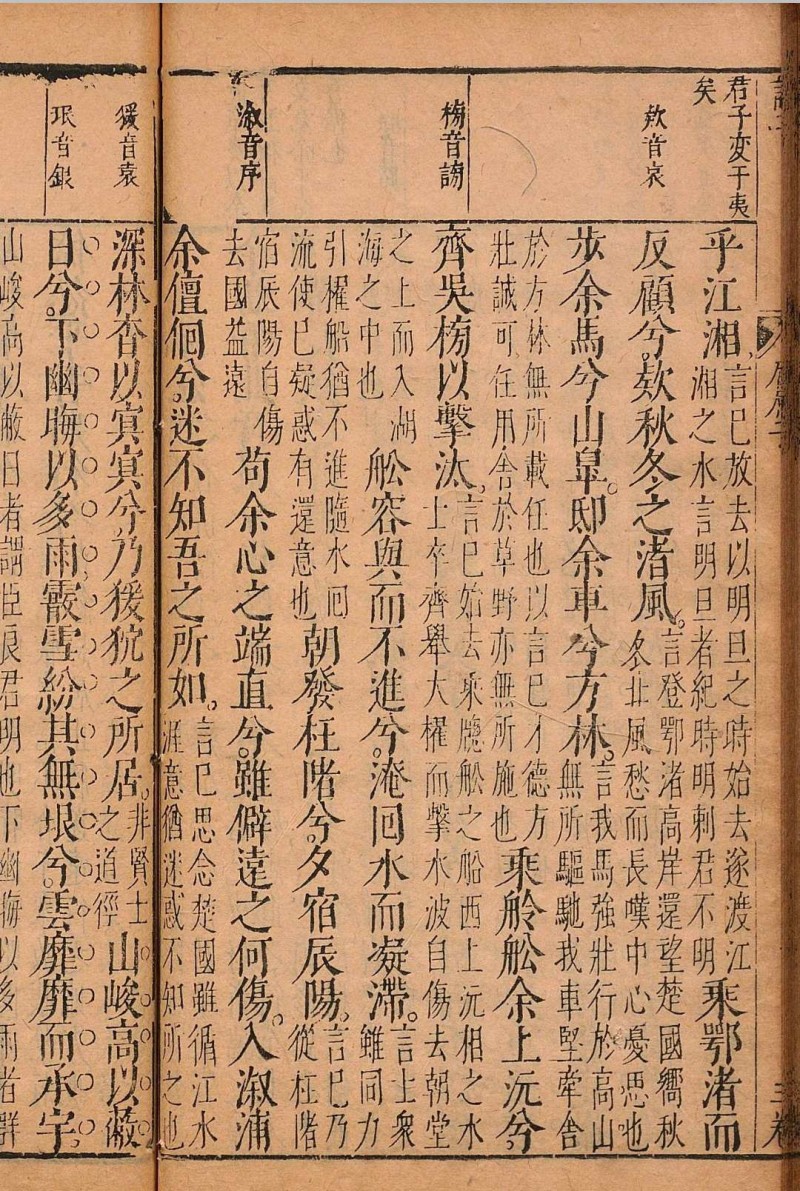 君子変于夷
矣
欸音哀
榜音謗
溆音序
猨音袁
垠音銀
乎江湘。言已放去以明旦之時始去遂渡江湘之水言明旦者紀時明刺君不明乘鄂渚而
反顧兮。欸秋冬之渚風。言登鄂渚高岸還望楚國嚮秋冬北風愁而長嘆中心憂思也
步余馬兮山皐。邸余車兮方林。言我馬強壯行於高山無所驅馳我車堅牽舍
於方林無所載任也以言已才德方壯誠可任用舍於草野亦無所施也乘舲舩余上沅兮。
齊吳榜以擊汰。言已始去乘舩之船西上沅相之水士卒齊舉大櫂而擊水波自傷去朝堂
之上而入湖海之中也舩容與而不進兮。淹回水而凝滯。言士衆雖同力
引櫂船猶不進隨水回流使已疑惑有還意也朝發枉陼兮。夕宿辰陽。言已乃從枉陼
宿辰陽自傷去國益遠苟余心之端直兮。雖僻遠之何傷。入溆浦
余儃佪兮。迷不知吾之所如。言已思念楚國雖循江水涯意猶迷惑不知所之也
深林杳以㝠㝠兮。乃猨狖之所居。非賢士之道徑山峻高以蔽
日兮。下幽晦以多雨。霰雪紛其無垠兮。雲霏霏而承宇。
山峻高以蔽日者謂臣君明也下幽晦以多雨者群